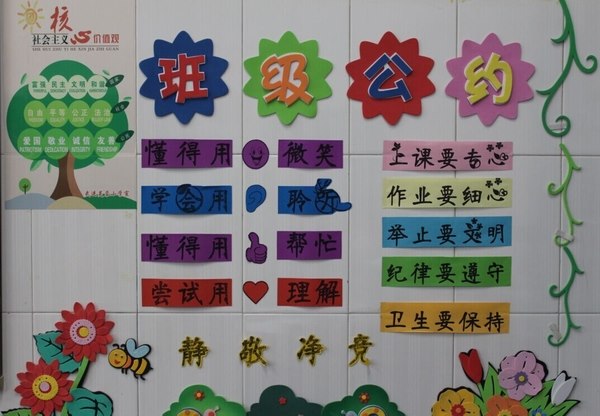 核心
社会主义 价值观
SHE HUI ZHU YI HE XIN JIA ZHI GUAN
富强 民主 文明 和谐
自由 平等 公正 法治
爱国 敬业 诚信 友善
PATRIOTISM DEDICATION INTEGRITY FRIENDSHIP
班级公约
懂得用 微笑
学会用 聆听
懂得用 帮忙
尝试用 理解
上课要专心
作业要细心
举止要文明
纪律要遵守
卫生要保持
静敬净竞